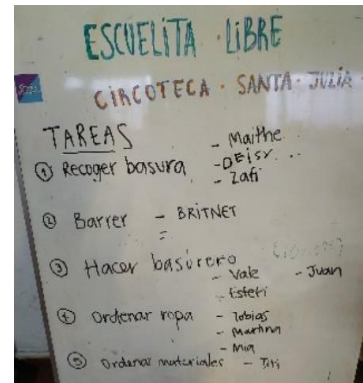 ESCUELITA · LIBRE
CIRCOTECA · SANTA · JULIA
TAREAS
- Maithe
① Recoger basura - DEISY ...
- Zafi
② Barrer - BRITNET
③ Hacer basurero
- Vale - Juan
- Esteri
④ Ordenar ropa - Tobias
- Martina
- Mia
⑤ Ordenar materiales - Titi